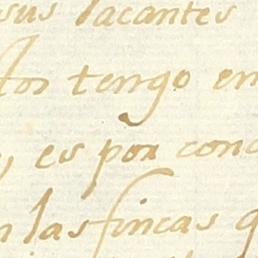 sus Vacantes
tos tengo en
es por conc
n las fincas q